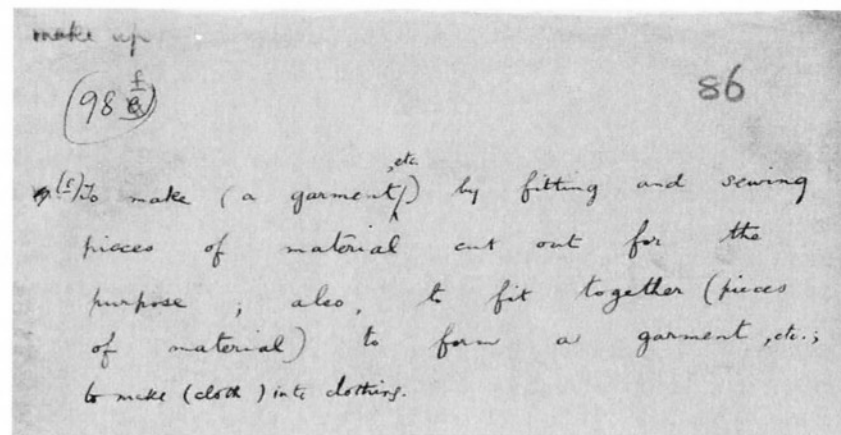 make up
(98 f
86
(f) To make (a garment, etc.) by fitting and sewing
pieces of material cut out for the
purpose ; also, to fit together (pieces
of material) to form a garment, etc.;
to make (cloth) into clothing.